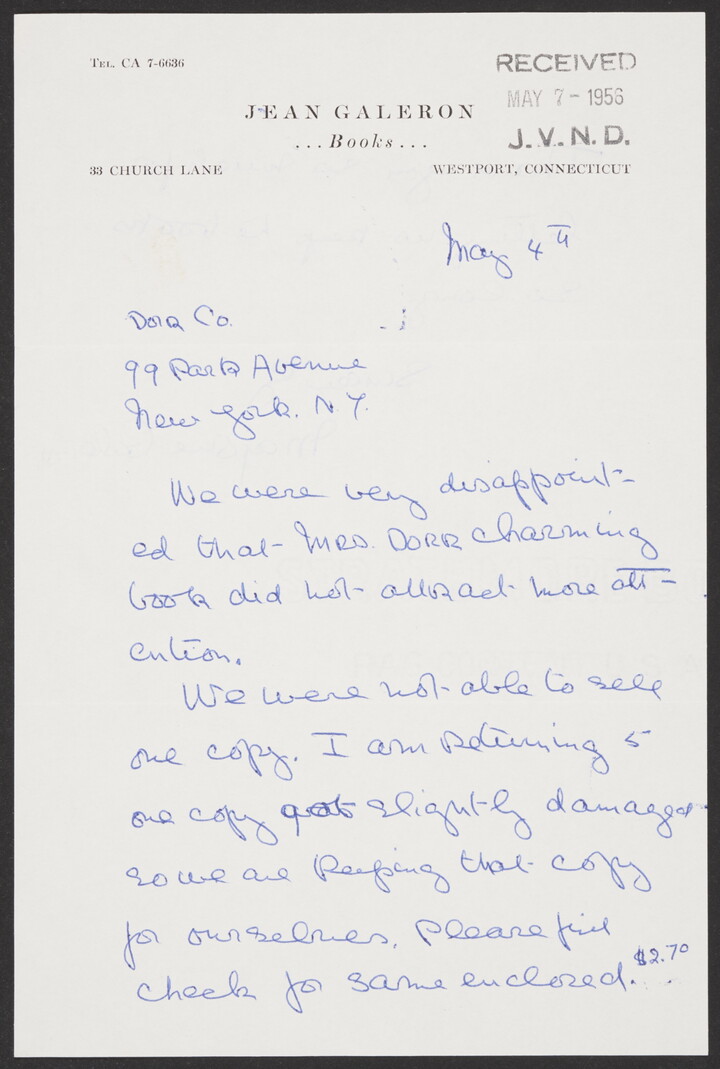 TEL. CA 7-6636
RECEIVED
MAY 7 - 1956
J.V.N.D.
JEAN GALERON
...Books...
33 CHURCH LANE
WESTPORT, CONNECTICUT
May 4th
Dorr Co.
99 Park Avenue
New York. N.Y.
We were very disappoint-
ed that Mrs. Dorr charming
book did not attract more att-
ention.
We were not able to sell
one copy. I am returning 5
one copy got slightly damaged
so we are keeping that copy
for ourselves. Please find
check for same enclosed. $2.70